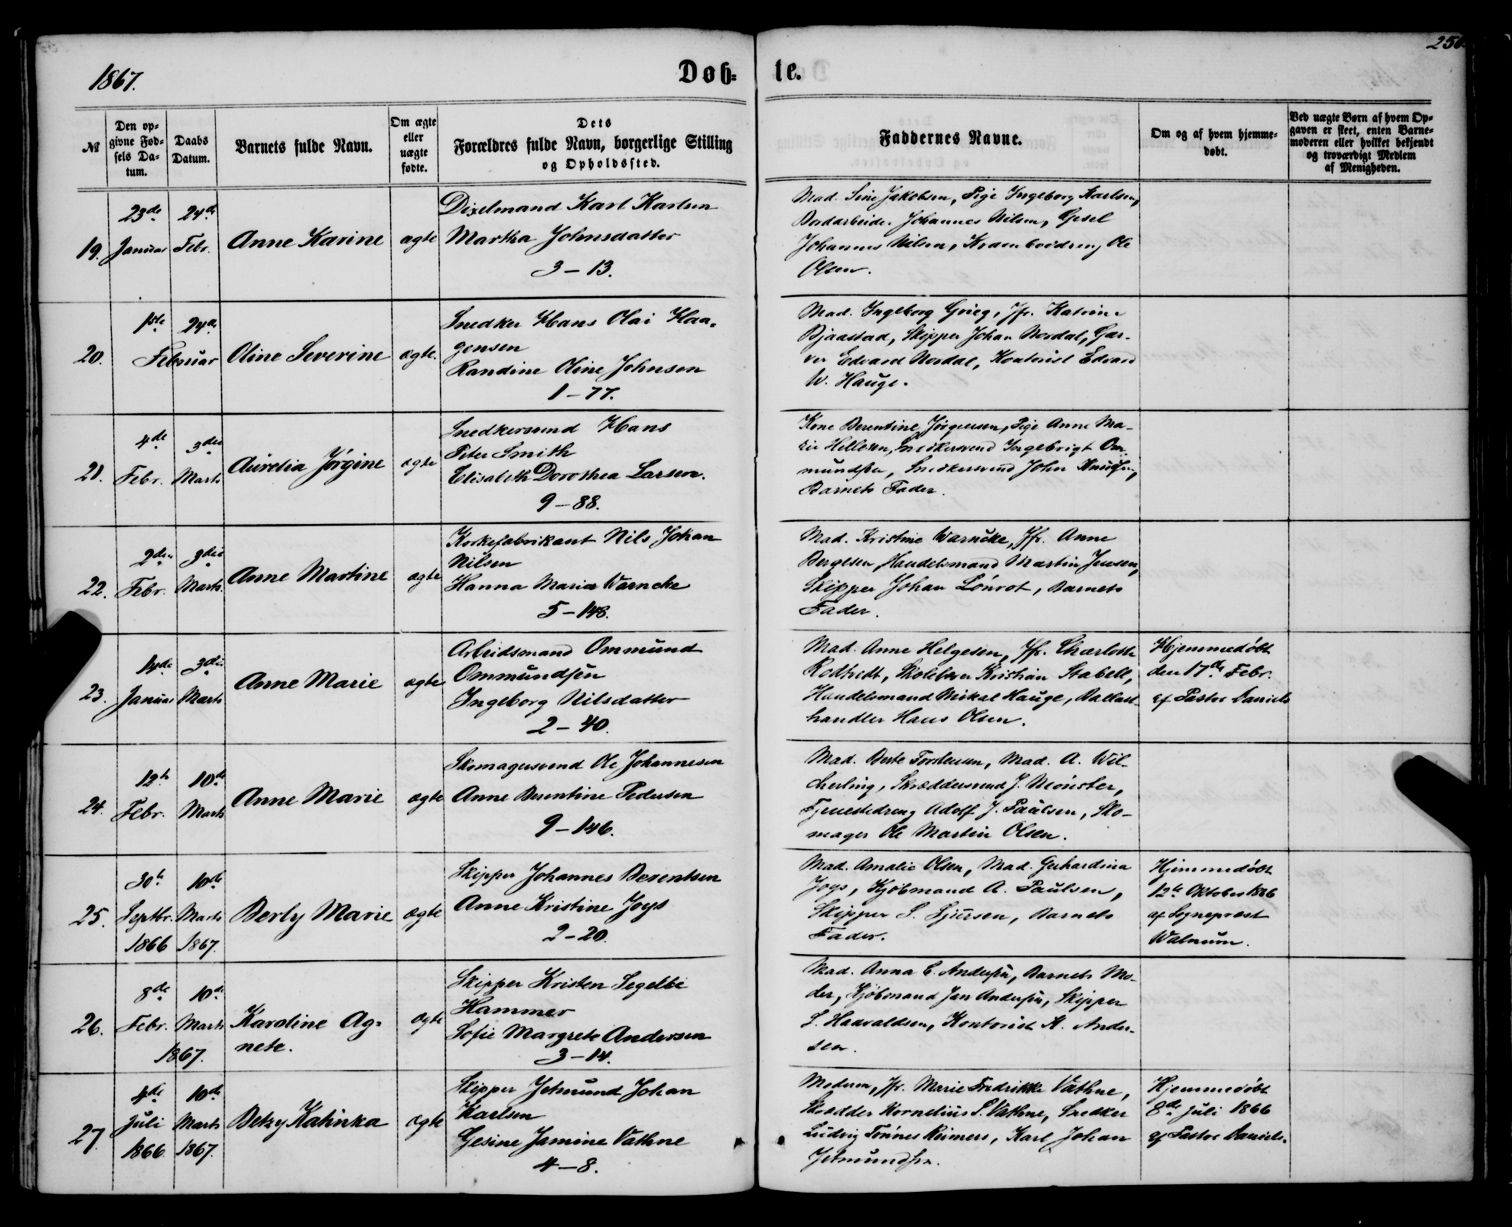 1867.
Døb-
te.
250
№
Den op-
givne Fød-
sels Da-
tum.
Daabs
Datum.
Barnets fulde Navn.
Om ægte
eller
uægte
fødte.
Dets
Forældres fulde Navn, borgerlige Stilling
og Opholdssted.
Faddernes Navne.
Om og af hvem hjemme-
døbt.
Ved uægte Børn af hvem Op-
gaven er skeet, enten Barne-
moderen eller hvilket bekjendt
og troværdigt Medlem
af Menigheden.
19.
23de
Januar
24de
Febr.
Anne Karine
ægte
Dixelmand Karl Karlsen
Martha Johnsdatter
3-13.
Mad. Sine Jakobsen, Pige Ingeborg Karlsen,
Johannes Nilsen, Gesel
Johannes Nilsen, Ole
Olsen.
20.
1ste
24de
Februar
Oline Severine
ægte.
Snedker Hans Olai Haa-
gensen
Randine Oline Johnsen
1-77.
Mad. Ingeborg Grieg, Jfr. Katrine
Bjaastad, Skipper Johan Nordal, Gar-
ver Edvard Nordal, Kontorist Edvard
W. Hauge.
21.
4de
Febr.
3die
Marts
Aurelia Jörgine
ægte
Snedkersvend Hans
Peter Smith
Elisabeth Dorothea Larsen.
9-88.
Kone Berentine Jörgensen, Pige Anne Ma-
rie Hellesen, Snedkersvend Ingebrigt Om-
mundsen, Snedkersvend John Knudsen,
Barnets Fader.
22.
2den
Febr.
3die
Marts
Anne Martine
ægte
Korkefabrikant Nils Johan
Nilsen
Hanna Maria Warncke
5-148.
Mad. Kristine Warncke, Jfr. Anne
Bergesen, Handelsmand Martin Jensen,
Skipper Johan Lönrot, Barnets
Fader.
23.
14de
Januar
3die
Marts
Anne Marie
ægte
Arbeidsmand Ommund
Ommundsen
Ingeborg Nilsdatter
2-40.
Mad. Anne Helgesen, Jfr. Charlotte
Skolelærer Kristian Stabell,
Handelsmand Mikal Hauge, Ballast-
handler Hans Olsen.
Hjemmedöbt
den 17de Febr.
af Pastor Daniels
24.
12te
Febr.
10de
Marts
Anne Marie
ægte
Skomagersvend Ole Johannesen
Anne Berentine Pedersen
9-146.
Mad. Berte Torstensen, Mad. A. Wil-
cherling, Skræddersvend J. Mönster,
Tjenestedreng Adolf J. Paulsen, Sko-
mager Ole Martin Olsen.
25.
30te
Septbr.
1866
10de
Marts
1867.
Berly Marie
ægte
Skipper Johannes Berentsen
Anne Kristine Joys
2-20.
Mad. Amalie Olsen, Mad. Gerhardina
Joys, Kjöbmand A. Paulsen,
Skipper S. Sjursen, Barnets
Fader.
Hjemmedöbt
12te Oktober 1866
af Sogneprest
Walnum.
26.
8de
Febr.
10de
Marts
1867.
Karoline Ag-
nete.
ægte
Skipper Kristen Segelbe
Hammer
Sofie Margrete Andersen
3-14.
Mad. Anna C. Andersen, Barnets Mo-
der, Kjöbmand Jan Andersen, Skipper
S. Haavaldsen, Kontorist K. Ander-
sen.
27.
4de
Juli
1866.
10de
Marts
1867.
Betsy Kathinka
ægte
Skipper Jetmund Johan
Karlsen
Gesine Jamine Vathne
4-8.
Moderen, Jfr. Marie Fredrikke Vathne,
Skrædder Kornelius S. Vathne, Snedker
Ludvig Tönnes Reimers, Karl Johan
Jetmundsen.
Hjemmedöbt
8de Juli 1866
af Pastor Daniels.